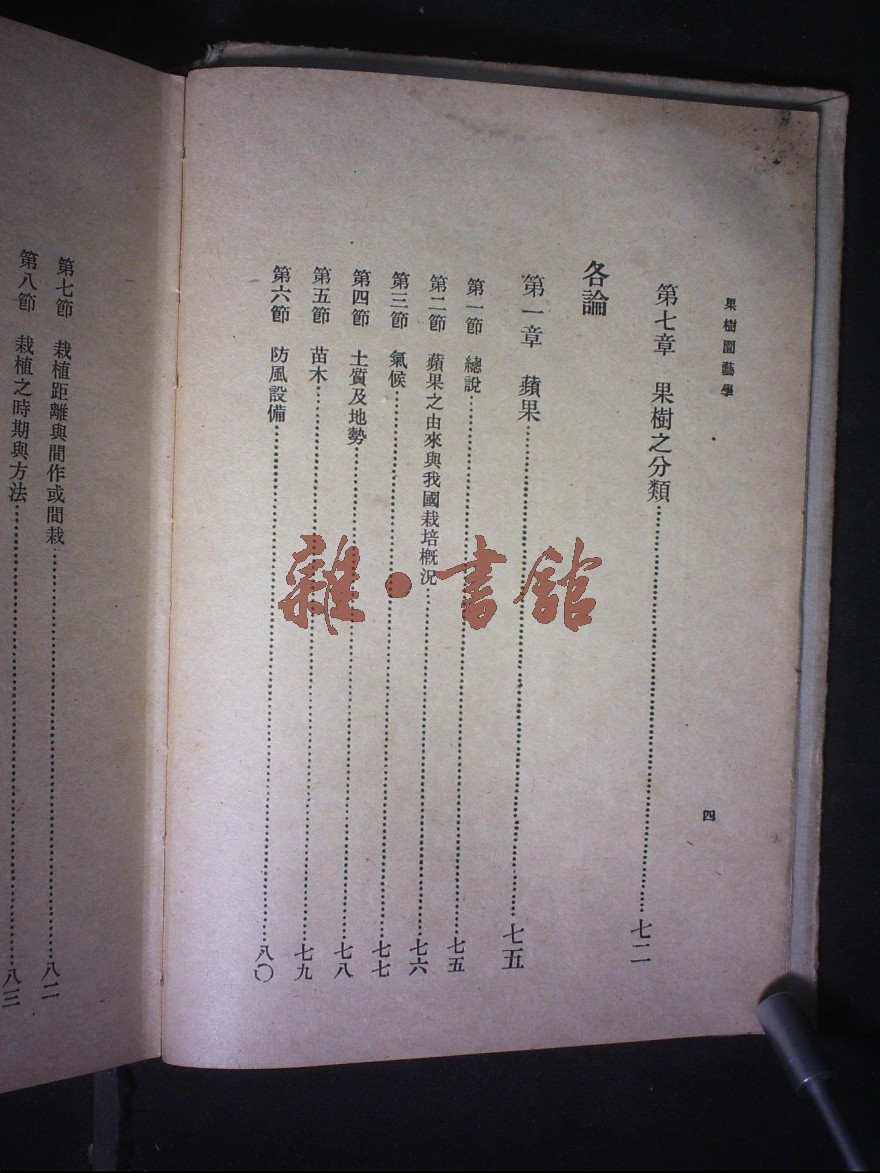 果樹園藝學
四
第七章　果樹之分類……七二
各論
第一章　蘋果……七五
第一節　總說……七五
第二節　蘋果之由來與我國栽培概況……七六
第三節　氣候……七七
第四節　土質及地勢……七八
第五節　苗木……七九
第六節　防風設備……八〇
第七節　栽植距離與間作或間栽……八二
第八節　栽植之時期與方法……八三
雜·書館